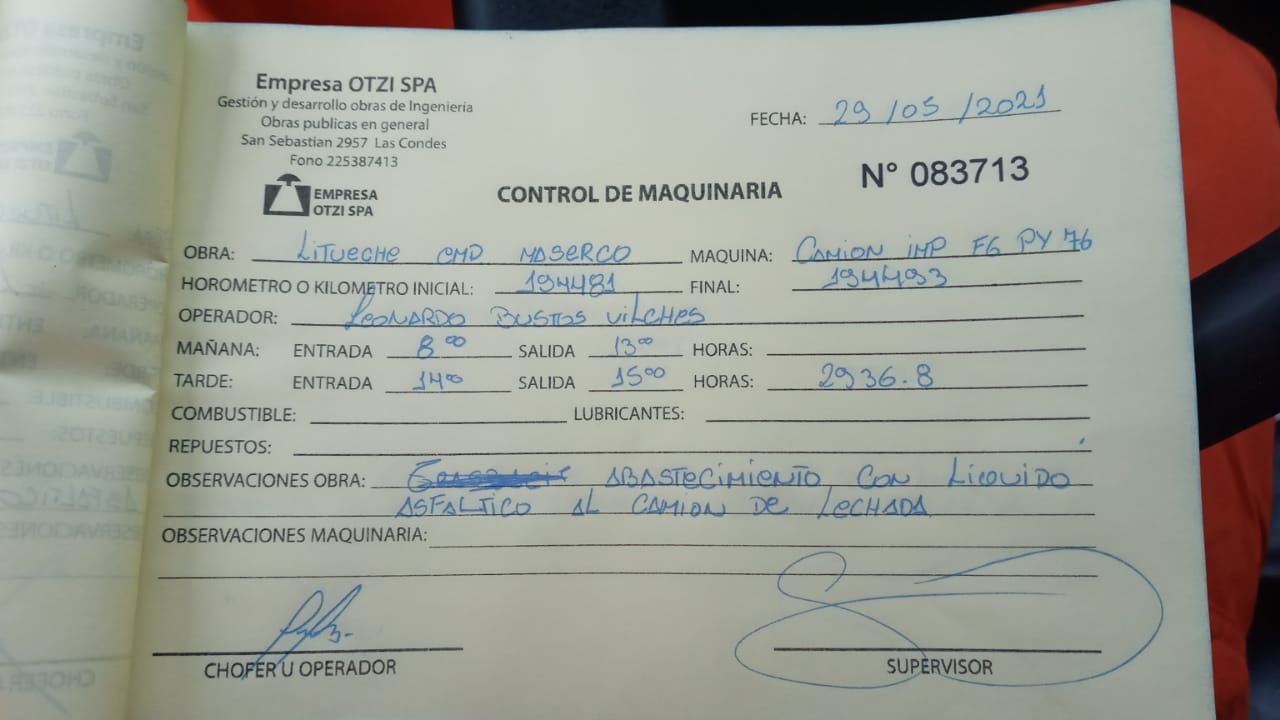 Empresa OTZI SPA
Gestión y desarrollo obras de Ingeniería
Obras publicas en general
San Sebastian 2957 Las Condes
Fono 225387413
EMPRESA
OTZI SPA
FECHA: 29/05/2021
CONTROL DE MAQUINARIA
N° 083713
OBRA: LITUECHE CMD MASERCO MAQUINA: CAMION IMP FG PY 76
HOROMETRO O KILOMETRO INICIAL: 194481 FINAL: 194493
OPERADOR: LEONARDO BUSTOS VILCHES
MAÑANA: ENTRADA 8 00 SALIDA 13 00 HORAS:
TARDE: ENTRADA 14 00 SALIDA 15 00 HORAS: 2936.8
COMBUSTIBLE: LUBRICANTES:
REPUESTOS:
OBSERVACIONES OBRA: ABASTECIMIENTO CON LIQUIDO
ASFALTICO AL CAMION DE LECHADA
OBSERVACIONES MAQUINARIA:
CHOFER U OPERADOR
SUPERVISOR